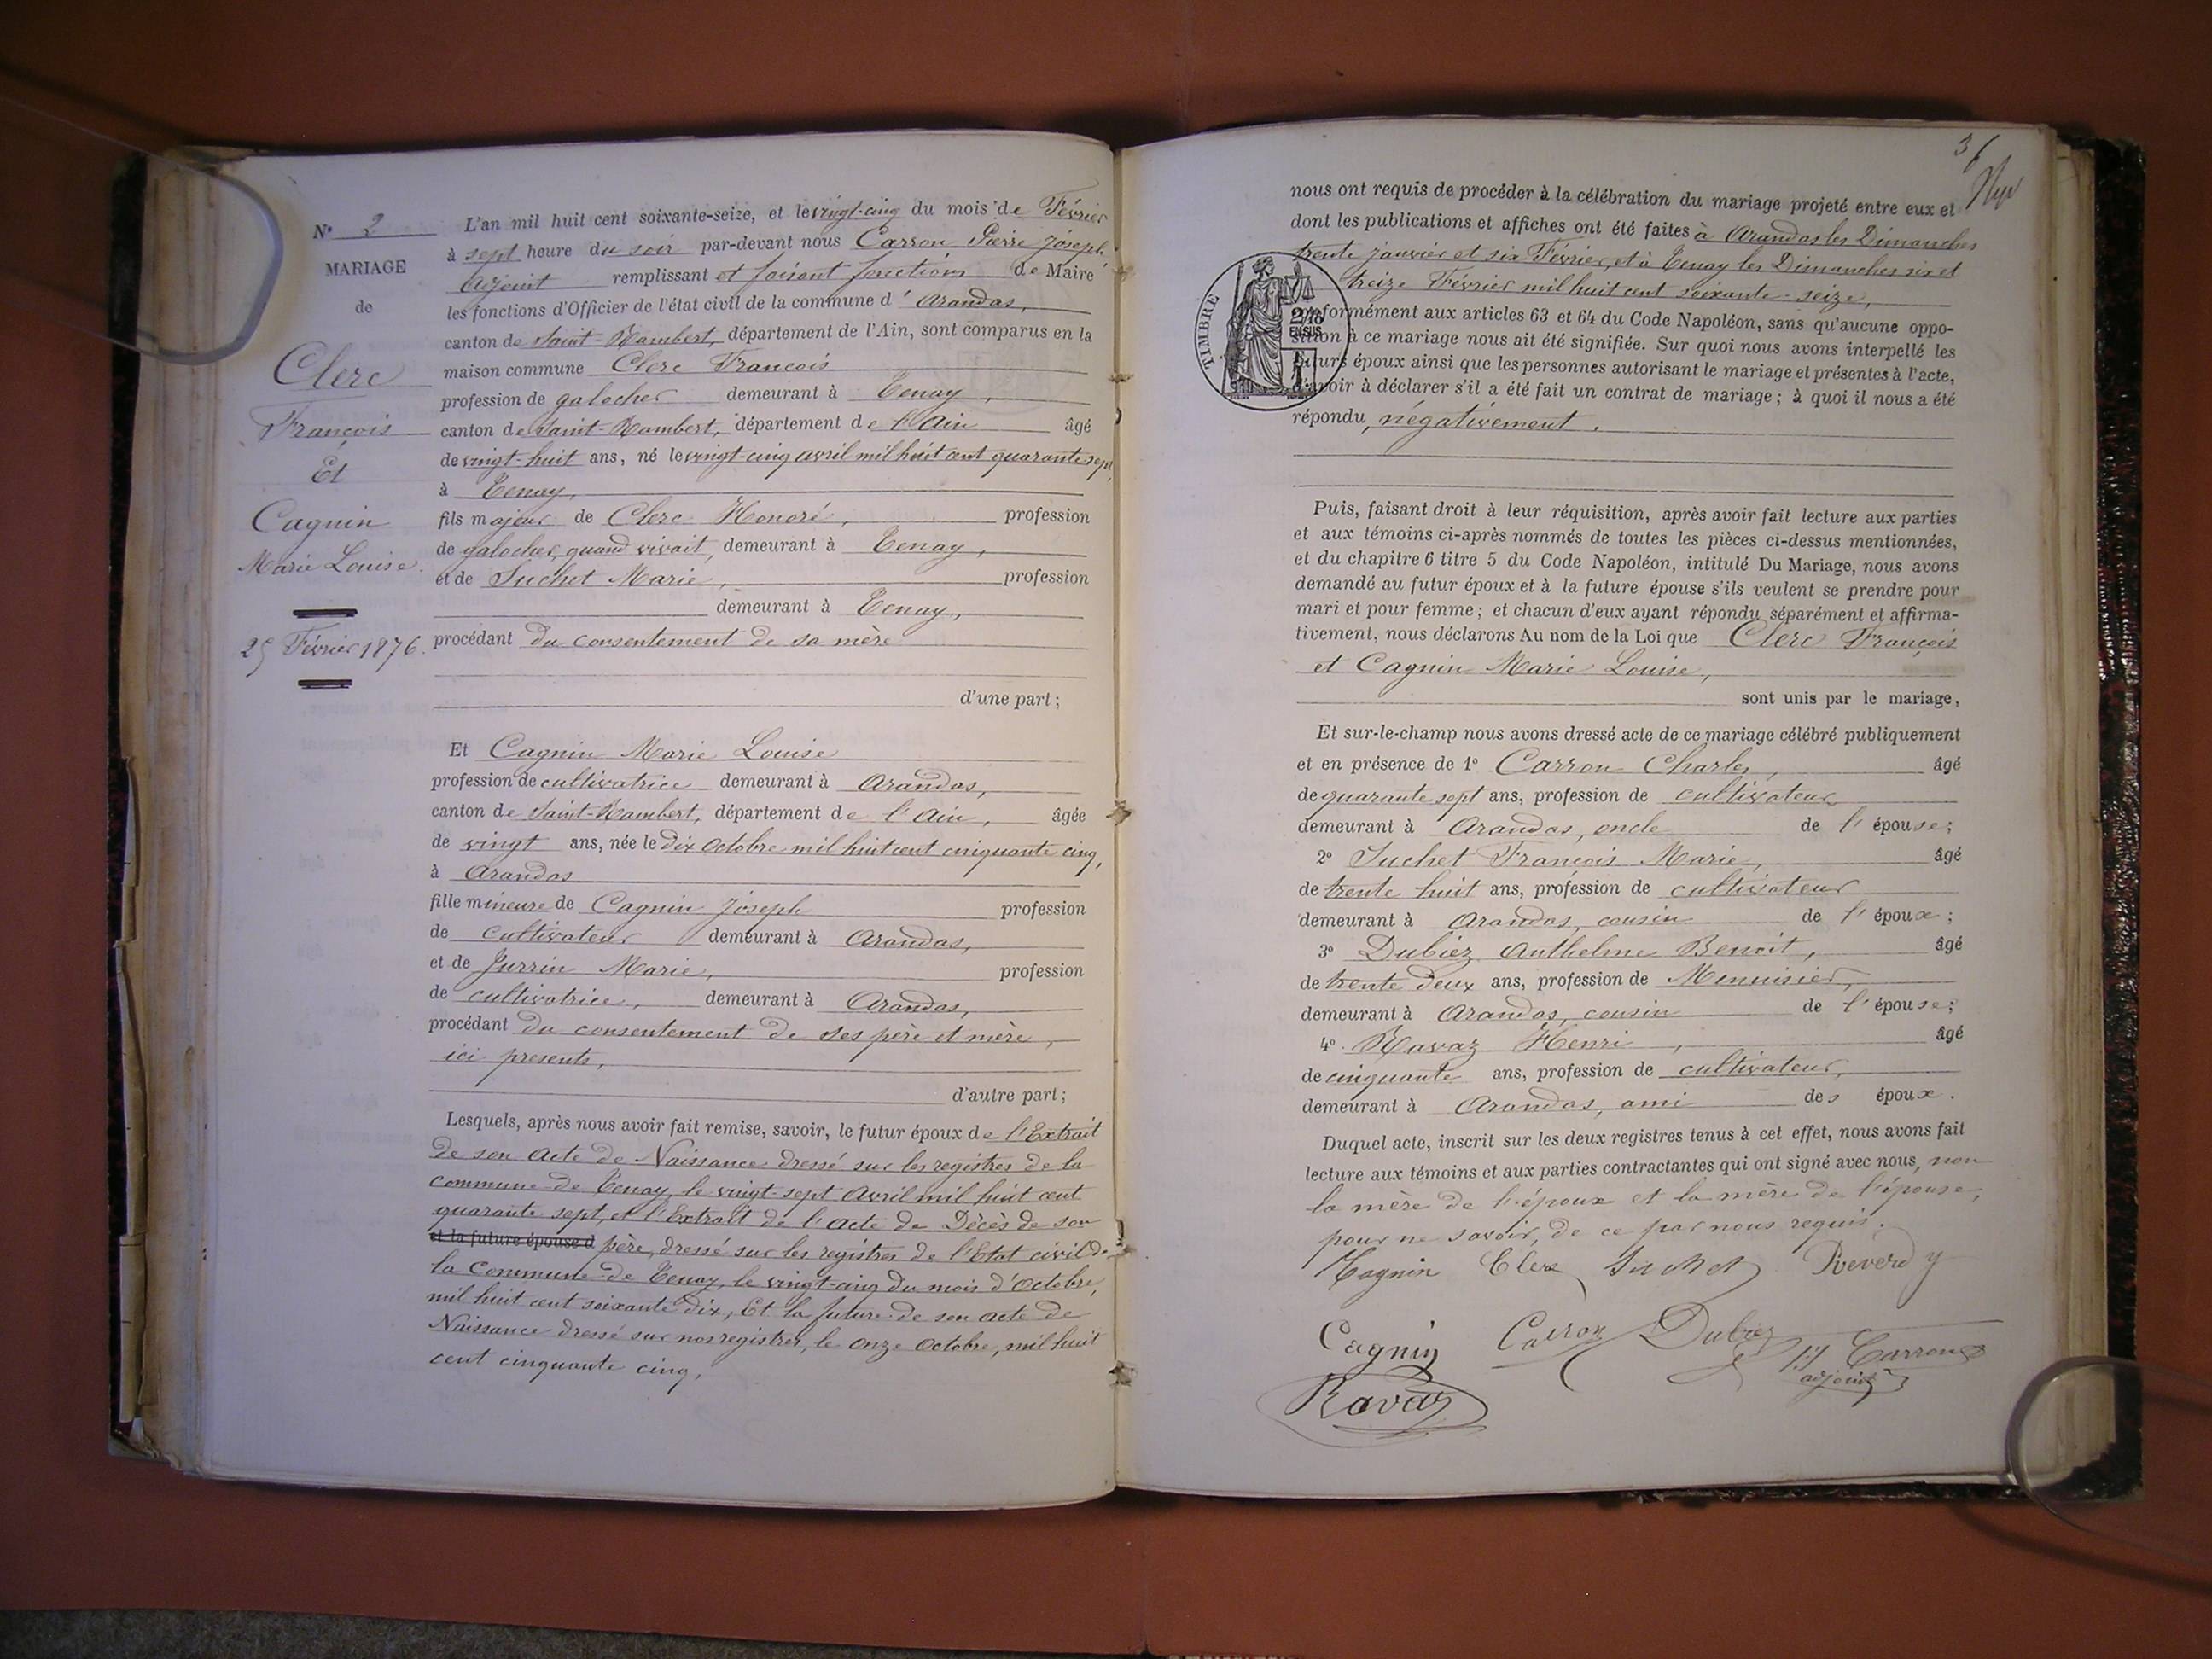 N° 2
MARIAGE
de
Clerc
François
Et
Cagnin
Marie Louise.
25 Février 1876.
L'an mil huit cent soixante-seize, et le vingt-cinq du mois de Février
à sept heure du soir par-devant nous Carron Pierre Joseph
Adjoint remplissant et faisant fonctions de Maire
les fonctions d'Officier de l'état civil de la commune d' Arandas,
canton de Saint-Rambert, département de l'Ain, sont comparus en la
maison commune Clerc François
profession de galocher demeurant à Tenay,
canton de Saint-Rambert, département de l'Ain âgé
de vingt-huit ans, né le vingt-cinq avril mil huit cent quarante sept,
à Tenay,
fils majeur de Clerc Honoré, profession
de galocher, quand vivait, demeurant à Tenay,
et de Suchet Marie, profession
demeurant à Tenay,
procédant du consentement de sa mère
d'une part;
Et Cagnin Marie Louise
profession de cultivatrice demeurant à Arandas,
canton de Saint-Rambert, département de l'Ain, âgée
de vingt ans, née le dix Octobre mil huit cent cinquante cinq,
à Arandas
fille mineure de Cagnin Joseph profession
de cultivateur demeurant à Arandas,
et de Jurrin Marie, profession
de cultivatrice, demeurant à Arandas,
procédant du consentement de ses père et mère,
ici presents,
d'autre part;
Lesquels, après nous avoir fait remise, savoir, le futur époux de l'Extrait
de son acte de Naissance dressé sur les registres de la
commune de Tenay, le vingt-sept Avril mil huit cent
quarante sept, et l'Extrait de l'acte de Décès de son
et la future épouse d père, dressé sur les registres de l'Etat civil de
la Commune de Tenay, le vingt-cinq du mois d'Octobre,
mil huit cent soixante dix, Et la future de son acte de
Naissance dressé sur nos registres, le onze Octobre, mil huit
cent cinquante cinq,
36
nous ont requis de procéder à la célébration du mariage projeté entre eux et
dont les publications et affiches ont été faites à Arandas les Dimanches
trente janvier et six Février, et à Tenay les Dimanches six et
treize Février mil huit cent soixante-seize,
TIMBRE
conformément aux articles 63 et 64 du Code Napoléon, sans qu'aucune oppo-
sition à ce mariage nous ait été signifiée. Sur quoi nous avons interpellé les
futurs époux ainsi que les personnes autorisant le mariage et présentes à l'acte,
d'avoir à déclarer s'il a été fait un contrat de mariage; à quoi il nous a été
répondu négativement.
Puis, faisant droit à leur réquisition, après avoir fait lecture aux parties
et aux témoins ci-après nommés de toutes les pièces ci-dessus mentionnées,
et du chapitre 6 titre 5 du Code Napoléon, intitulé Du Mariage, nous avons
demandé au futur époux et à la future épouse s'ils veulent se prendre pour
mari et pour femme; et chacun d'eux ayant répondu séparément et affirma-
tivement, nous déclarons Au nom de la Loi que Clerc François
et Cagnin Marie Louise,
sont unis par le mariage,
Et sur-le-champ nous avons dressé acte de ce mariage célébré publiquement
et en présence de 1° Carron Charles, âgé
de quarante sept ans, profession de cultivateur
demeurant à Arandas, oncle de l'épouse;
2° Suchet François Marie, âgé
de trente huit ans, profession de cultivateur
demeurant à Arandas, cousin de l'époux;
3° Dubiez Anthelme Benoit, âgé
de trente deux ans, profession de Menuisier,
demeurant à Arandas, cousin de l'épouse;
4° Ravaz Henri, âgé
de cinquante ans, profession de cultivateur,
demeurant à Arandas, ami des époux.
Duquel acte, inscrit sur les deux registres tenus à cet effet, nous avons fait
lecture aux témoins et aux parties contractantes qui ont signé avec nous, non
la mère de l'époux et la mère de l'épouse,
pour ne savoir, de ce par nous requis.
Cagnin Clerc Suchet Reverdy
Cagnin Carron Dubiez PJ Carron
adjoint
Ravaz